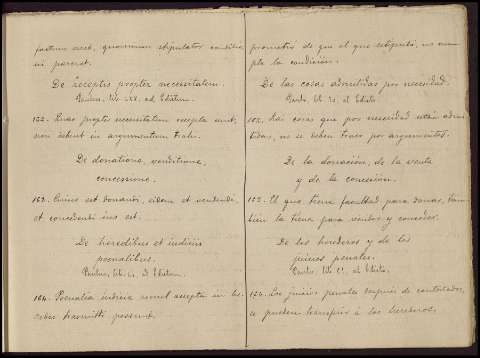 factum esset, quominus stipulator conditio
ni pareret.
De receptis propter necessitatem.
Paulus, lib. LXX. ad Edictum.
162. Quae propter necessitatem recepta sunt,
non debent in argumentum trahi.
De donatione, venditione,
concessione.
163. Cuius est donandi, eidem et vendendi
et concedendi ius est.
De heredibus et indiciis
poenalibus.
Paulus, lib. ad Edictum.
164. Poenalia iudicia semel accepta in he
redes transmitti possunt.
prometió de que el que estipuló, no cum
pla la condición.
De las cosas admitidas por necesidad.
Paulo, lib. al Edicto.
162. Las cosas que por necesidad están admi
tidas, no se deben traer por argumentos.
De la donación, de la venta
y de la concesión.
163. El que tiene facultad para donar, tam
bién la tiene para vender y conceder.
De los herederos y de los
juicios penales.
Paulo, lib. al Edicto.
164. Los juicios penales después de contestados,
se pueden transferir á los herederos.